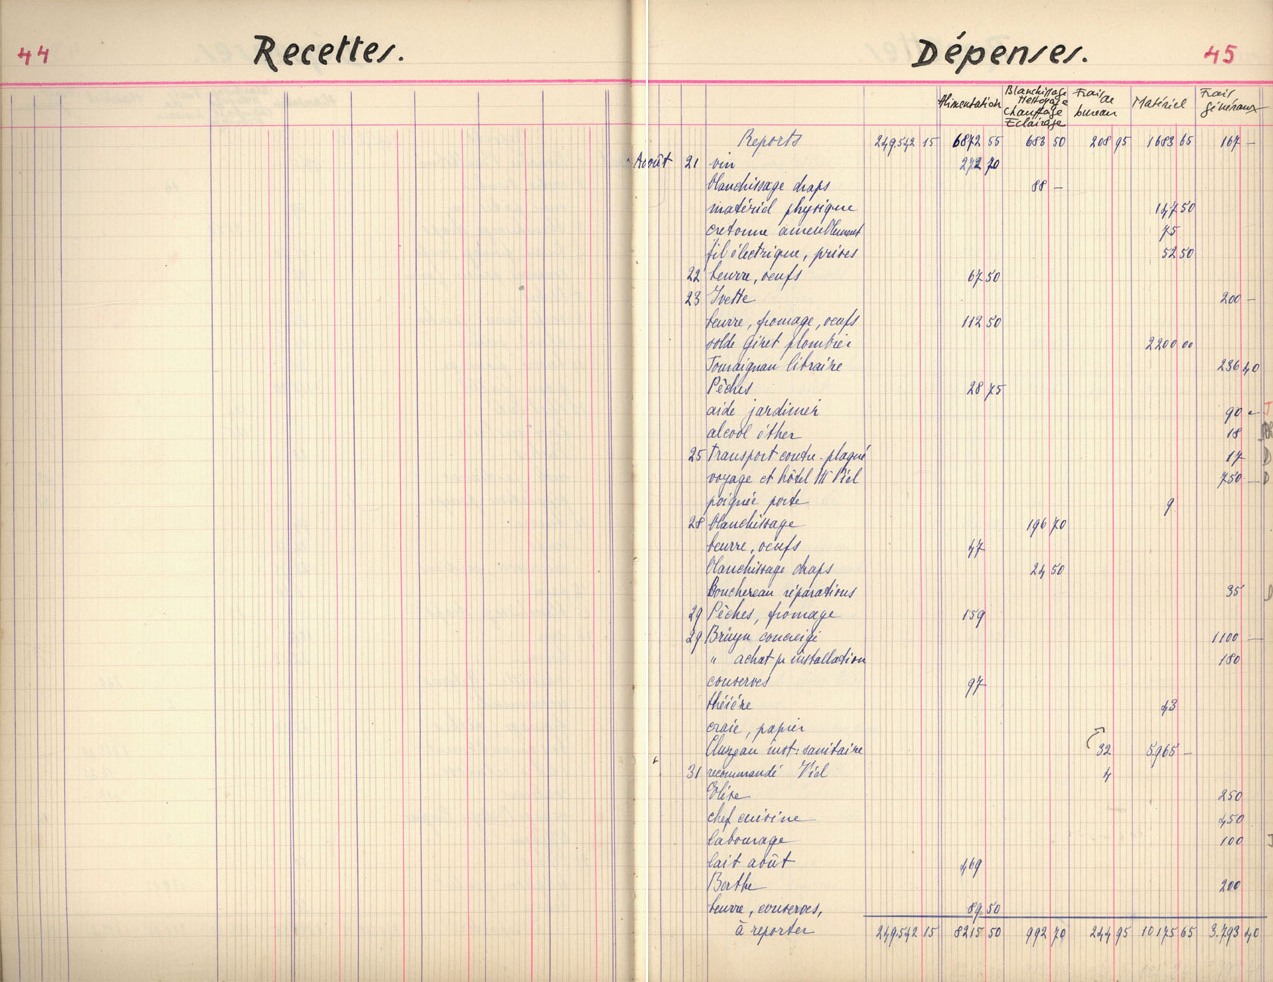 44
Recettes.
Dépenses.
45
Alimentation
Blanchissage Nettoyage Chauffage Eclairage
Frais de bureau
Matériel
Frais Généraux
Reports 249542 15 6872 55 683 50 208 95 1683 65 167 —
Août 21 vin 272 70
blanchissage draps 88 —
matériel physique 147 50
cretonne ameublement 75
fil électrique, prises 52 50
22 beurre, oeufs 67 50
23 Yvette 200 —
beurre, fromage, oeufs 112 50
solde Giret plombier 2200 00
Touraignan libraire 236 40
Pêches 28 75
aide jardinier 90 —
alcool éther 18
25 Transport contre-plaqué 17
voyage et hôtel Viel 750 —
poignée porte 9
28 blanchissage 196 70
beurre, oeufs 47
blanchissage draps 24 50
Bouchereau réparations 35
29 Pêches, fromage 159
29 Bruyn concierge 1100 —
" achat pr installation 180
conserves 97
théière 43
craie, papier
Cluzeau inst: sanitaire 32 5965 —
31 recommandé Viel 4
Elise 250
chef cuisine 450
labourage 100
lait août 469
Berthe 200
beurre, conserves, 89 50
à reporter 249542 15 8215 50 992 70 244 95 10175 65 3.793 40